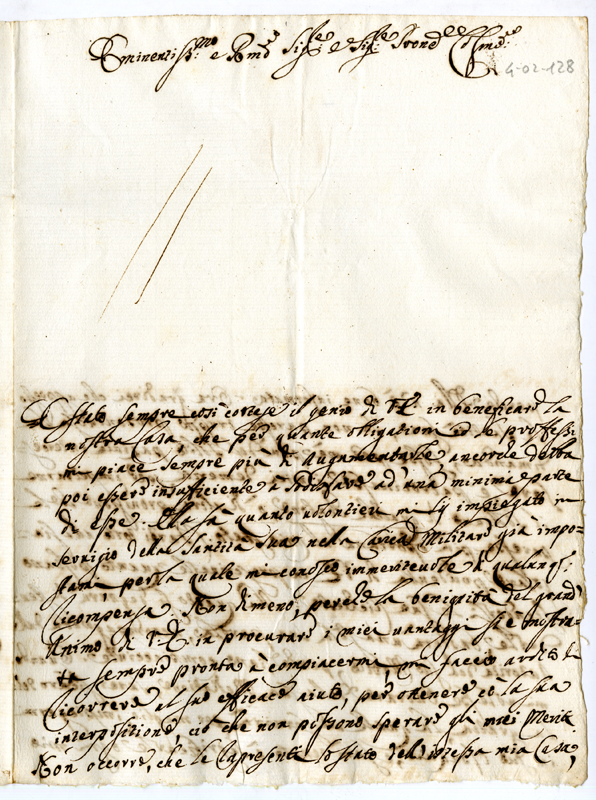 Eminentiss.mo e Rmo Sig.re e Sig.re Prond Col.mo
4-02-128
È stato sempre così cortese il genio di V.E. in beneficare la
nostra Casa che per quante obligationi io le professi
mi piace sempre più di augumentarle, ancorche debba
poi essere insufficiente à sodisfare ad una minima parte
di esse. Ella sà quanto volontieri mi sij impiegato in
servigio della Santità Sua nella Carica Militare già impo=
stami, per la quale mi conosco immeritevole di qualunq;
ricompensa. Non dimeno, perche la benignità del grand'
Animo di V.E. in procurare i miei vantaggi si è mostra=
ta sempre pronta à compiacermi, mi faccio ardito di
ricorrere al suo efficace aiuto, per ottenere cõ la sua
interpositione, ciò che non possono sperare gli miei Meriti
Non occorre, che le rapresenti lo stato dell'istessa mia Casa,